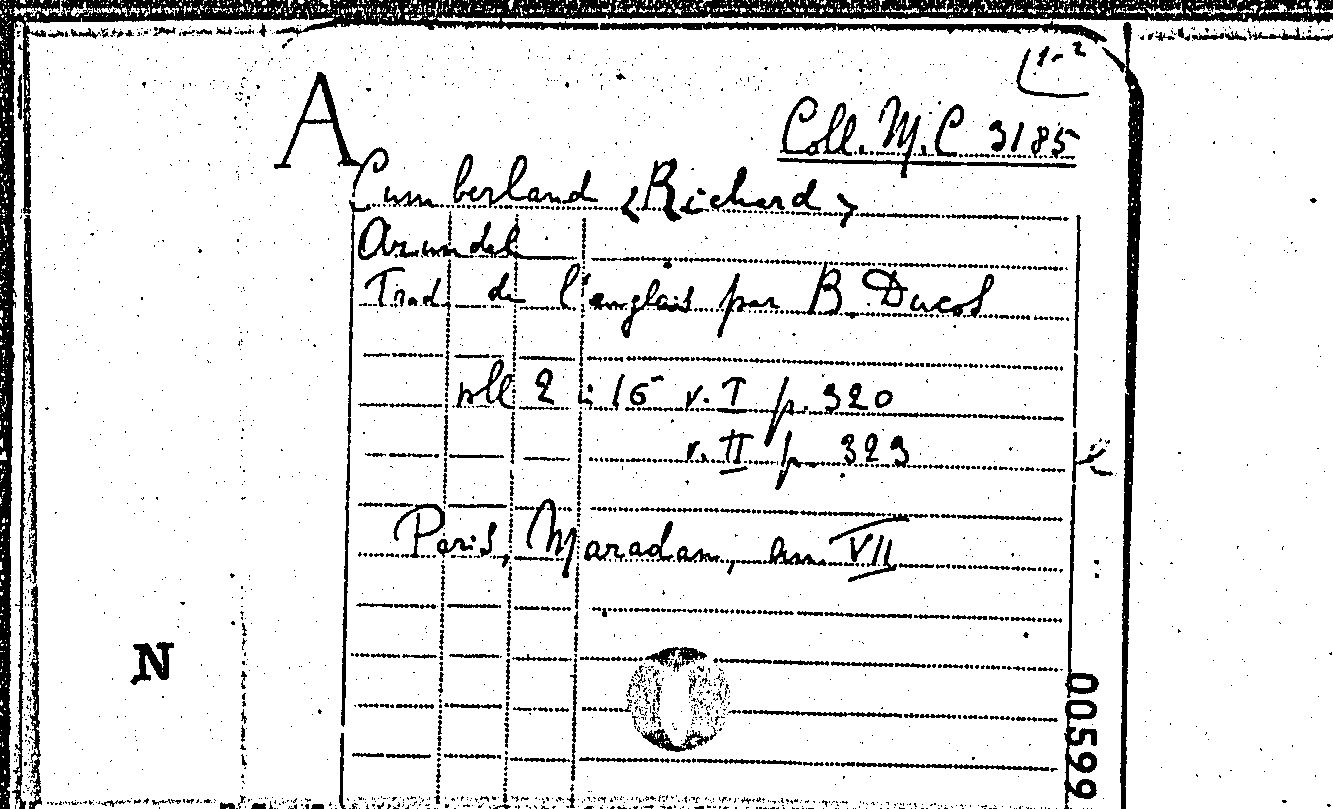 1-2
A
Coll. M.C 3185
Cumberland <Richard>
Arundel
Trad. de l'anglais par B. Ducos
coll 2 : 16 v. I p. 320
v. II p. 323
Paris, Maradan, an VII
N
00599